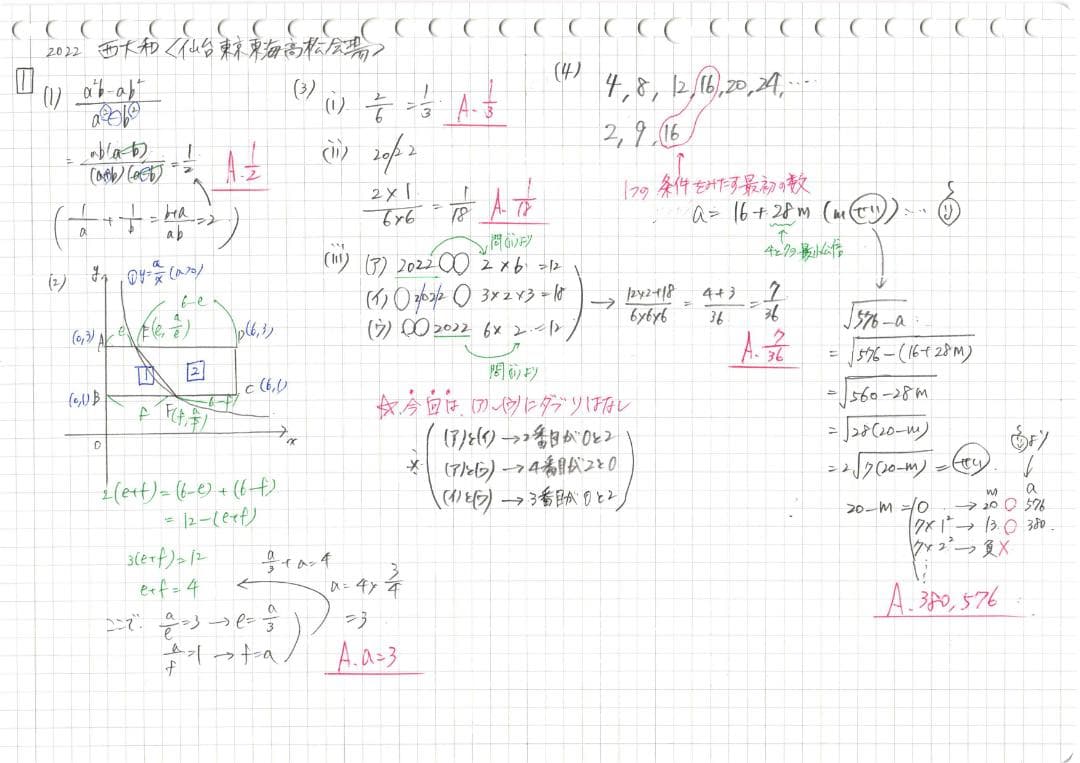 2022 西大和〈仙台東京東海高松会場〉
1
(1) (a²b-ab²)/(a²-b²)
= ab(a-b)/(a+b)(a-b) = 1/2 A. 1/2
( 1/a + 1/b = (b+a)/ab = 2 )
(2)
y
① y=a/x (a>0)
6-e
(0,3) A e E(e, a/e) D(6,3)
1 2
(0,1) B f F(f, a/f) 6-f C(6,1)
0 x
2(e+f)=(6-e)+(6-f)
=12-(e+f)
3(e+f)=12
e+f=4
ここで a/e=3 → e=a/3
a/f=1 → f=a
a/3+a=4
a=4×3/4
=3
A. a=3
(3)
(i) 2/6 = 1/3 A. 1/3
(ii) 20/22
(2×1)/(6×6) = 1/18 A. 1/18
問(ii)より
(iii) (ア) 2022○○ 2×6=12
(イ) ○2/02/2○ 3×2×3=18
(ウ) ○○2022 6×2=12
問(ii)より
→ (12×2+18)/(6×6×6) = (4+3)/36 = 7/36
A. 7/36
☆今回は、(ア)~(ウ)にダブりはなし
※ (ア)と(イ)→2番目が0と2
(ア)と(ウ)→4番目が2と0
(イ)と(ウ)→3番目が0と2
(4) 4, 8, 12, 16, 20, 24, …
2, 9, 16
1つの条件をみたす最初の数
a=16+28m (mせい) …
4と7の最小公倍
√576-a
=√576-(16+28m)
=√560-28m
=√28(20-m)
=2√7(20-m) =せい
より
m a
20-m=0 → 20 ○ 576
7×1² → 13 ○ 380
7×2² → 負×
⋮
A. 380, 576